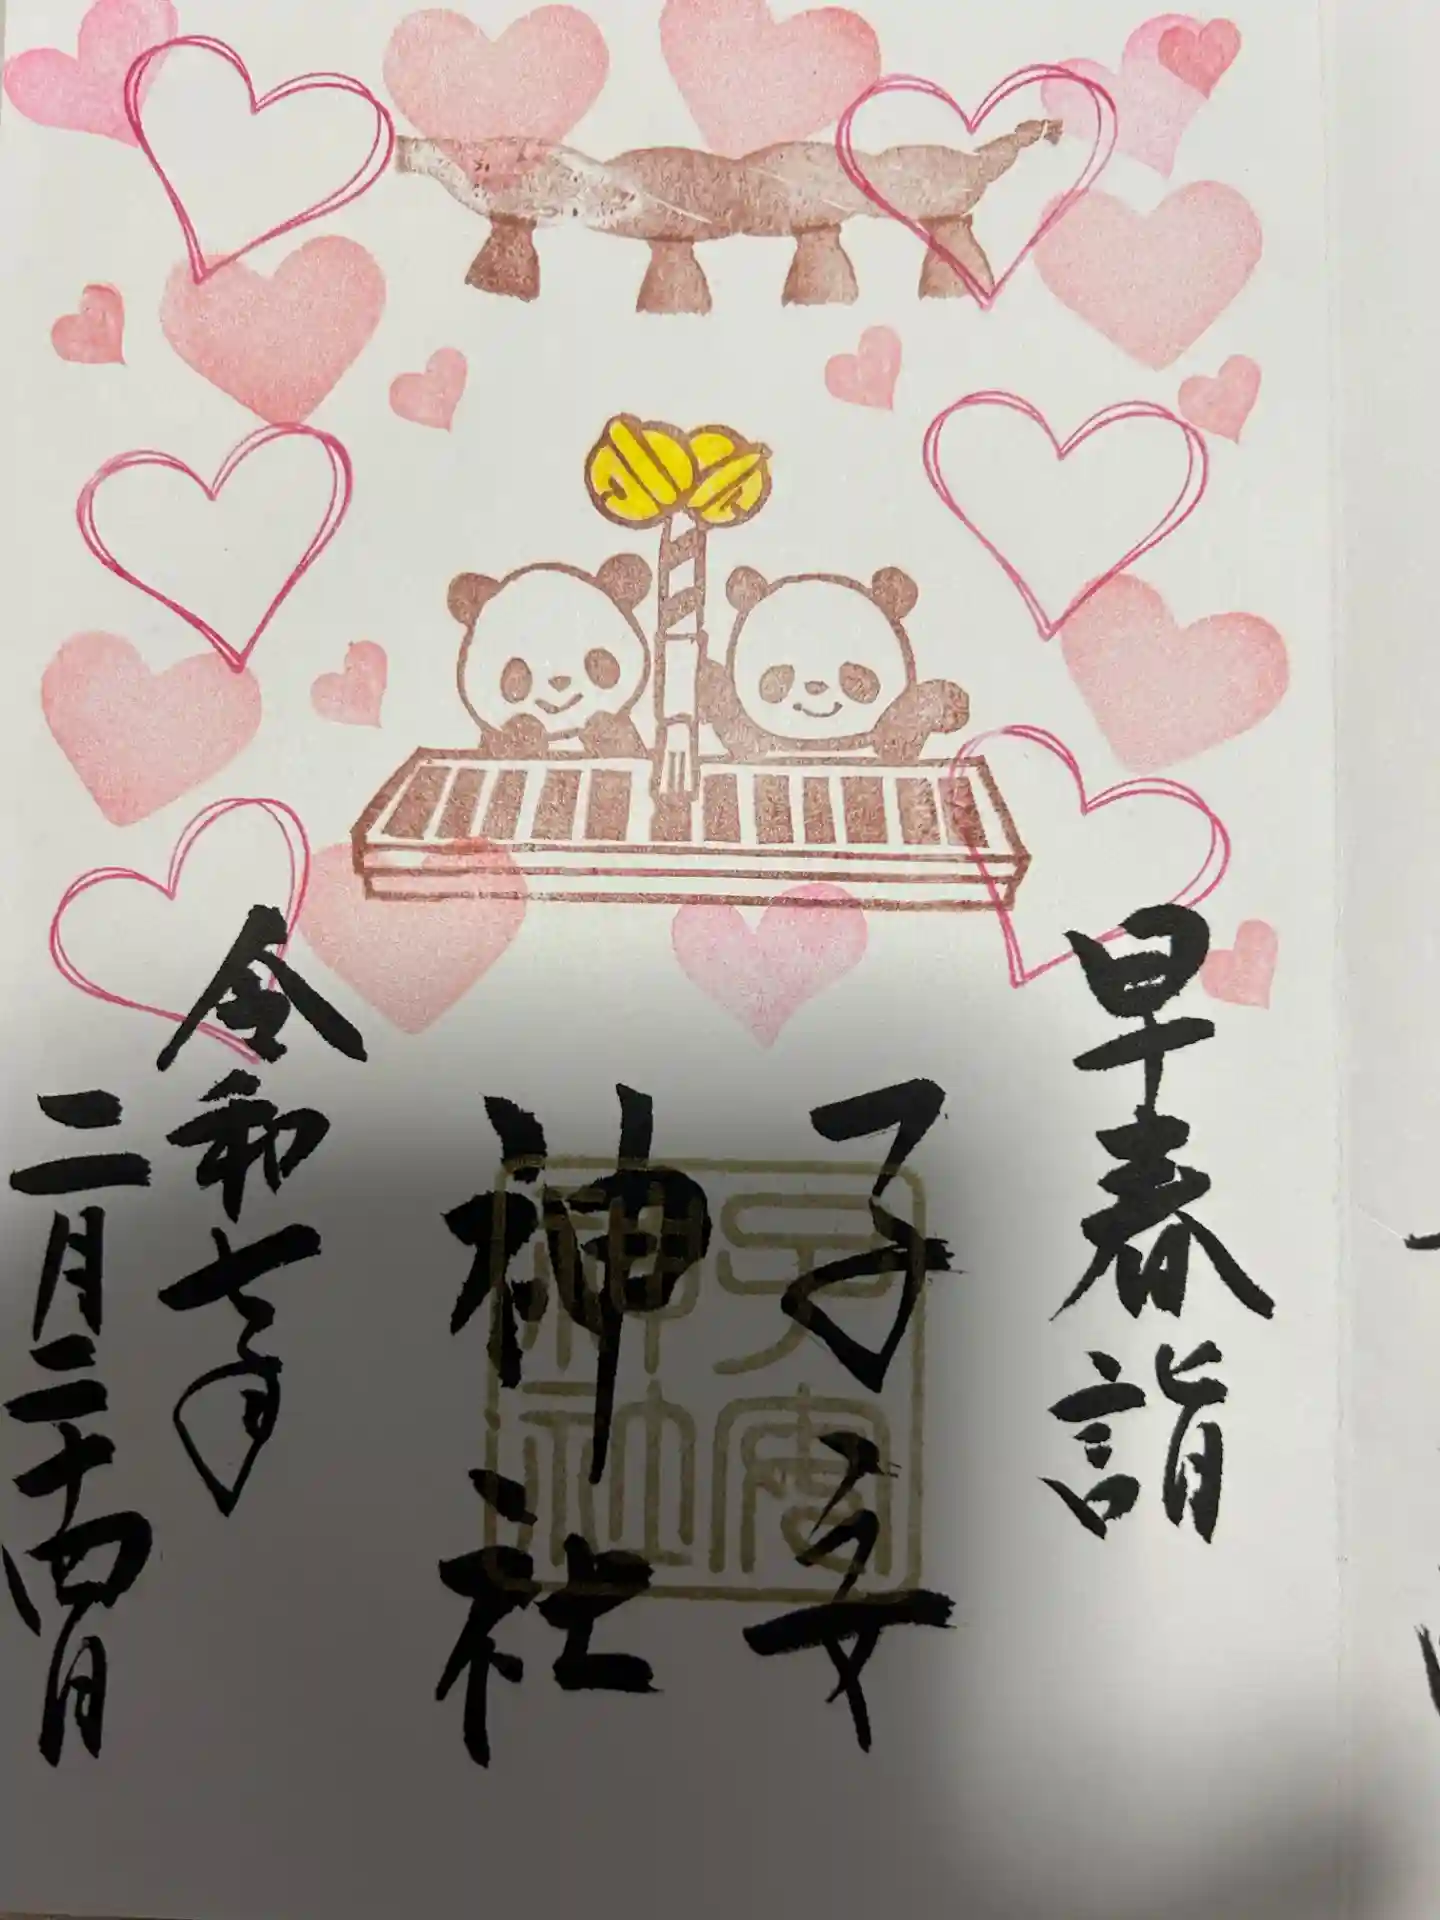 早春詣
子安神社
子安神社
令和七年
二月二十四日